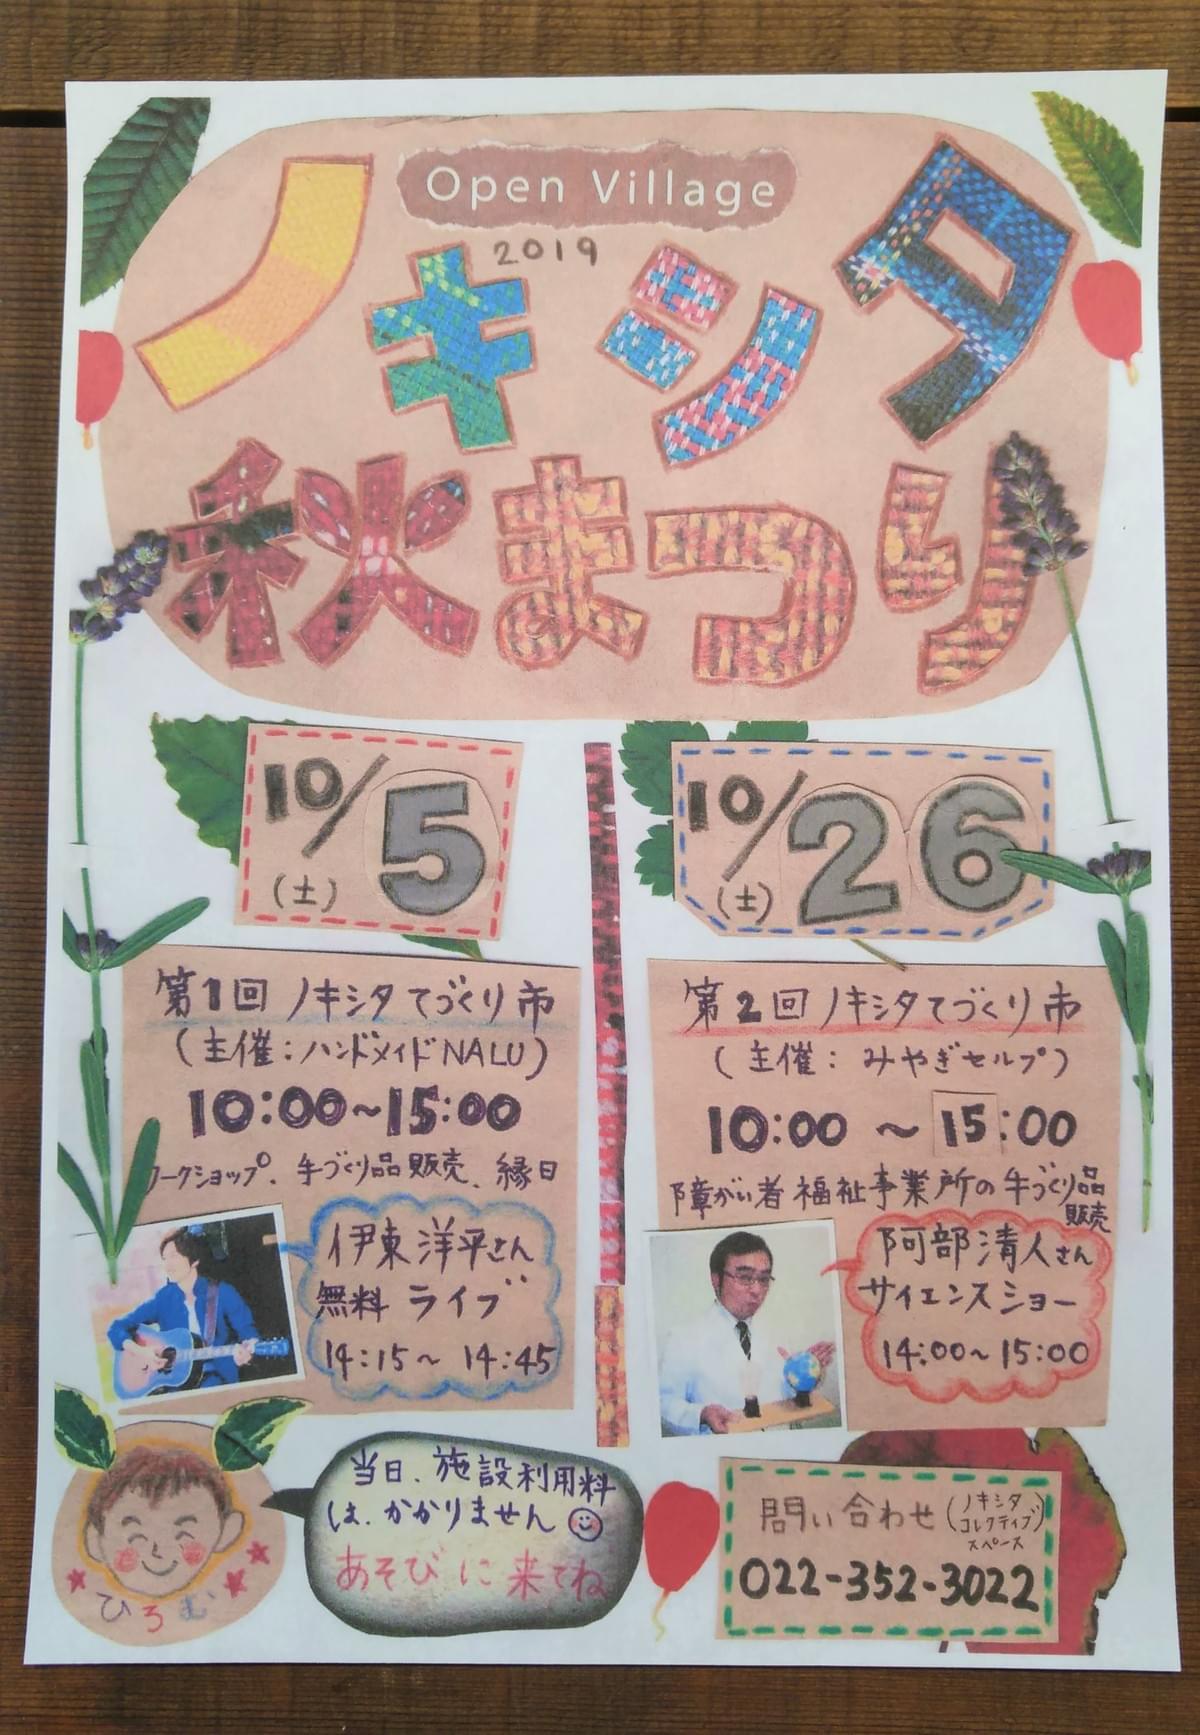 Open Village
2019
ノキシタ
秋まつり
10/5
(土)
第1回 ノキシタてづくり市
(主催:ハンドメイドNALU)
10:00~15:00
ワークショップ、手づくり品販売、縁日
伊東洋平さん
無料 ライブ
14:15~14:45
10/26
(土)
第2回 ノキシタてづくり市
(主催:みやぎセルプ)
10:00 ~ 15:00
障がい者福祉事業所の手づくり品
販売
阿部清人さん
サイエンスショー
14:00~15:00
ひろむ
当日、施設利用料
は、かかりません
あそびに来てね
問い合わせ(ノキシタ
コレクティブ
スペース)
022-352-3022